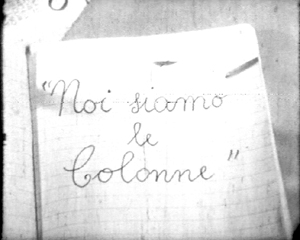 "Noi siamo
le
Colonne"